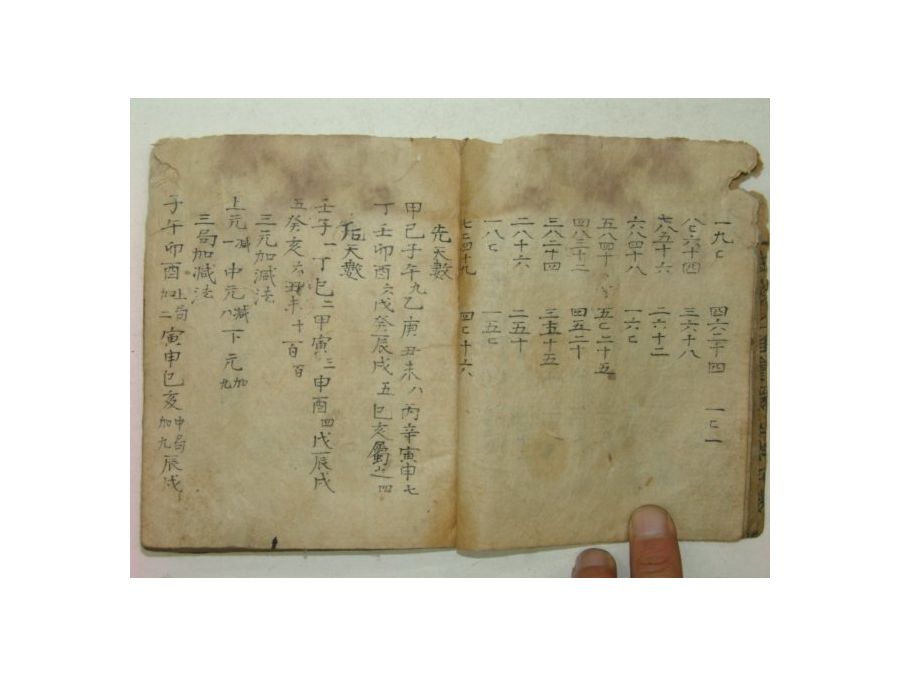 一九匕 四六二十四 一匕一
八匕六十四 三六十八
七八五十六 二六十二
六八四十八 一六匕
五八四十 五匕二十五
四八三十二 四五二十
三八二十四 三五十五
二八十六 二五十
一八匕 一五匕
七匕四十九 四匕十六
先天數
甲己子午九乙庚丑未八丙辛寅申七
丁壬卯酉六戊癸辰戌五巳亥屬之四
后天數
壬子一丁巳二甲寅三申酉四戊辰戌
五癸亥六丑未十百百
三元加減法
上元一減中元八減下元九加
三局加減法
子午卯酉上局加二寅申巳亥中局加九辰戌